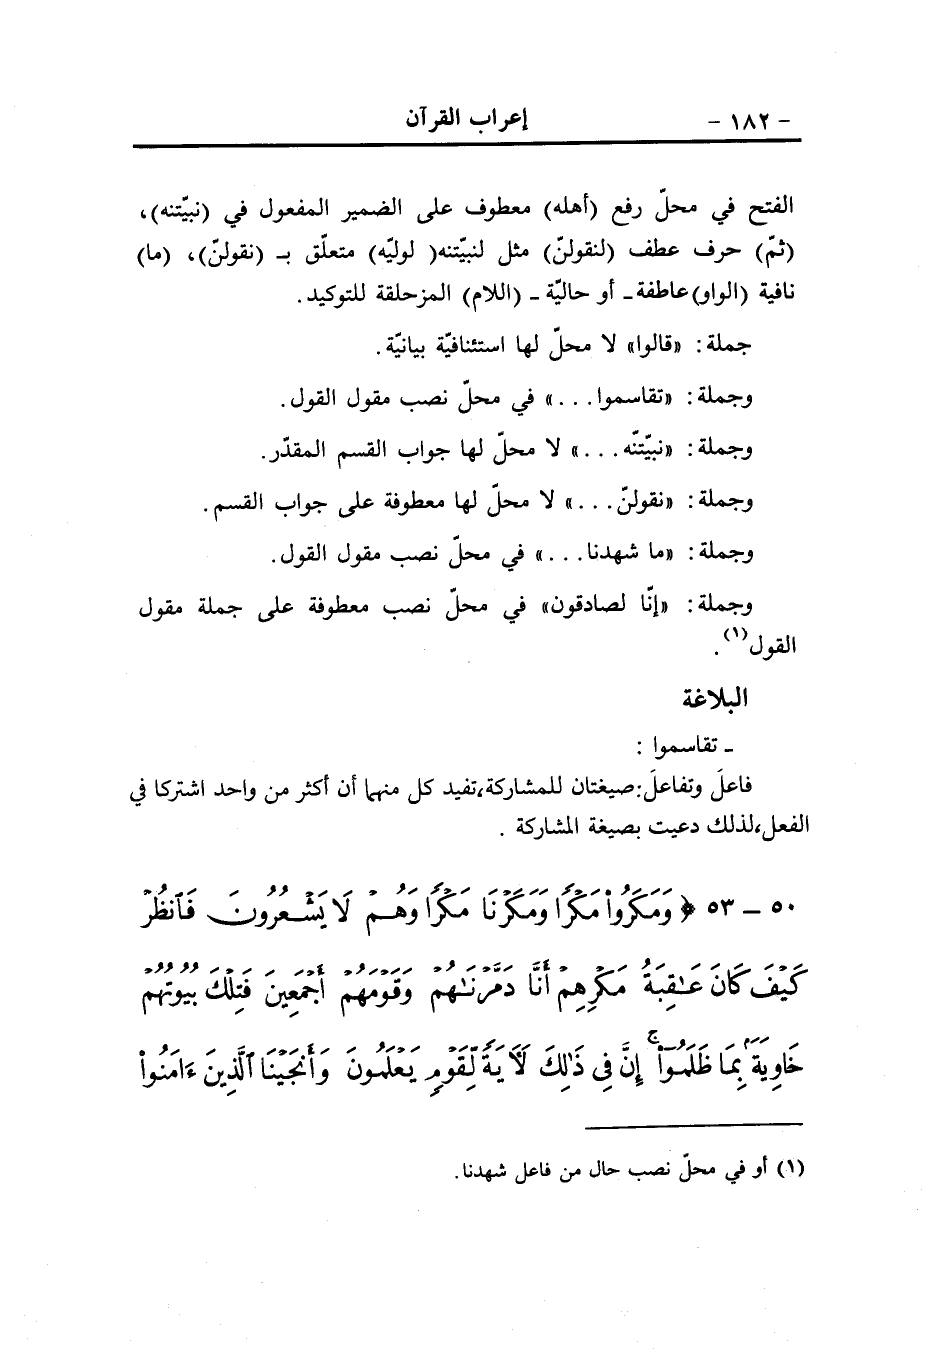 - ١٨٢ - إعراب القرآن
الفتح في محلّ رفع (أهله) معطوف على الضمير المفعول في (نبيّتنه)،
(ثمّ) حرف عطف (لنقولنّ) مثل لنبيّتنه( لوليّه) متعلّق بـ (نقولنّ)، (ما)
نافية (الواو)عاطفة ـ أو حاليّة ـ (اللام) المزحلقة للتوكيد.
جملة: «قالوا» لا محلّ لها استئنافيّة بيانيّة.
وجملة: «تقاسموا. . .» في محلّ نصب مقول القول.
وجملة: «نبيّتنّه. . .» لا محلّ لها جواب القسم المقدّر.
وجملة: «نقولنّ. . .» لا محلّ لها معطوفة على جواب القسم.
وجملة: «ما شهدنا. . .» في محلّ نصب مقول القول.
وجملة: «إنّا لصادقون» في محلّ نصب معطوفة على جملة مقول
القول(١).
البلاغة
ـ تقاسموا :
فاعلَ وتفاعلَ:صيغتان للمشاركة،تفيد كل منهما أن أكثر من واحد اشتركا في
الفعل،لذلك دعيت بصيغة المشاركة .
٥٠ ـ ٥٣ ﴿ وَمَكَرُوا۟ مَكْرًا وَمَكَرْنَا مَكْرًا وَهُمْ لَا يَشْعُرُونَ فَٱنظُرْ
كَيْفَ كَانَ عَـٰقِبَةُ مَكْرِهِمْ أَنَّا دَمَّرْنَـٰهُمْ وَقَوْمَهُمْ أَجْمَعِينَ فَتِلْكَ بُيُوتُهُمْ
خَاوِيَةًۢ بِمَا ظَلَمُوٓا۟ ۚ إِنَّ فِى ذَٰلِكَ لَـَٔايَةً لِّقَوْمٍ يَعْلَمُونَ وَأَنجَيْنَا ٱلَّذِينَ ءَامَنُوا۟
(١) أو في محلّ نصب حال من فاعل شهدنا.